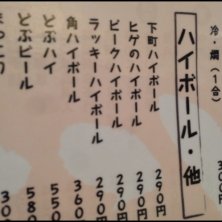 冷・燗(1合)
ハイボール・他
下町ハイボール 290円
ヒゲのハイボール 290円
ピークハイボール 290円
ラッキーハイボール 290円
角ハイボール 360
どぶハイ 550
どぶビール 580
まっこり